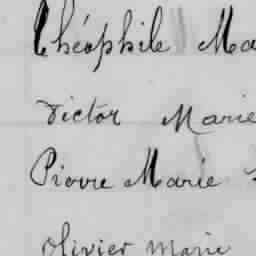 Théophile Ma
Victor Marie
Pierre Marie
Olivier Marie